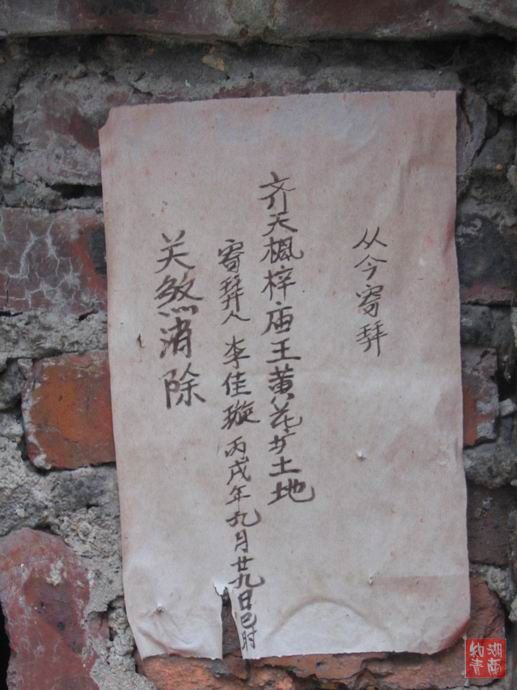 从今寄拜
齐天枫梓庙王黄花圹土地
寄拜人李佳璇丙戌年九月廿九日巳时
关煞消除